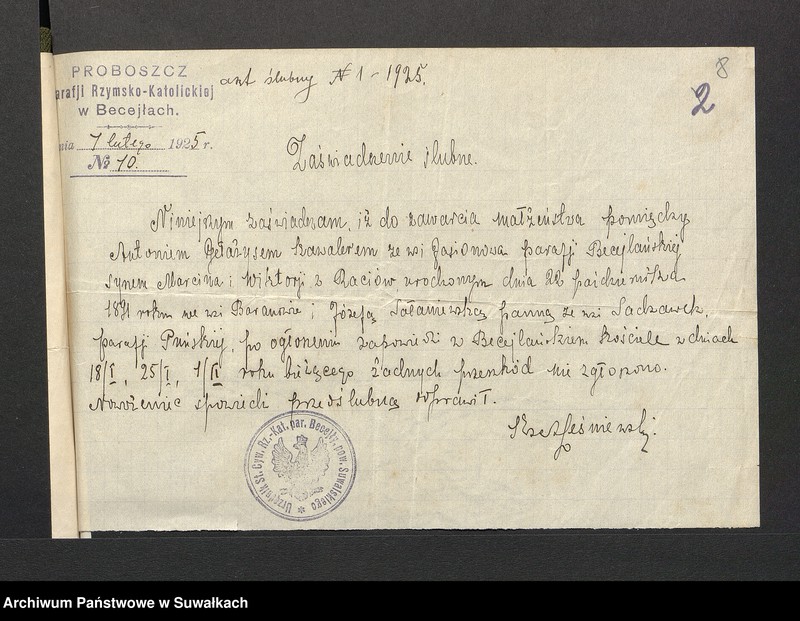 8
2
PROBOSZCZ
arafji Rzymsko-Katolickiej
w Becejłach.
nia 7 lutego 1925 r.
№ 10.
akt ślubny N 1 - 1925.
Zaświadczenie ślubne.
Niniejszym zaświadczam, iż do zawarcia małżeństwa pomiędzy
Antoniem kawalerem ze wsi Jasionowa parafji Becejlańskiej
synem Marcina i Wiktorji z Raciów urodzonym dnia 22 października
1891 roku we wsi Baranowie i Józefą Sołaniewską panną ze wsi Sadzawek,
parafji Puńskiej, po ogłoszeniu zapowiedzi w Becejlańskiem Kościele w dniach
18/I, 25/I, 1/II roku bieżącego żadnych przeszkód nie zgłoszono.
Nowożeniec spowiedź przedślubną odprawił.
Leśniewski.
Urzędnik St. Cyw. Rz.-Kat. par. Becejły, pow. Suwalskiego
Archiwum Państwowe w Suwałkach